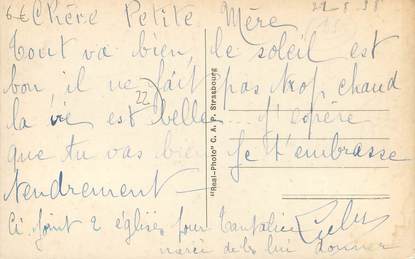 6€ Chère Petite Mère
Tout va bien, le soleil est
bon, il ne fait pas trop chaud
22
la vie est belle... J'espère
que tu vas bien Je t'embrasse
tendrement
Ci joint 2 églises pour
merci de les lui donner
"Real-Photo" C. A. P. Strasbourg